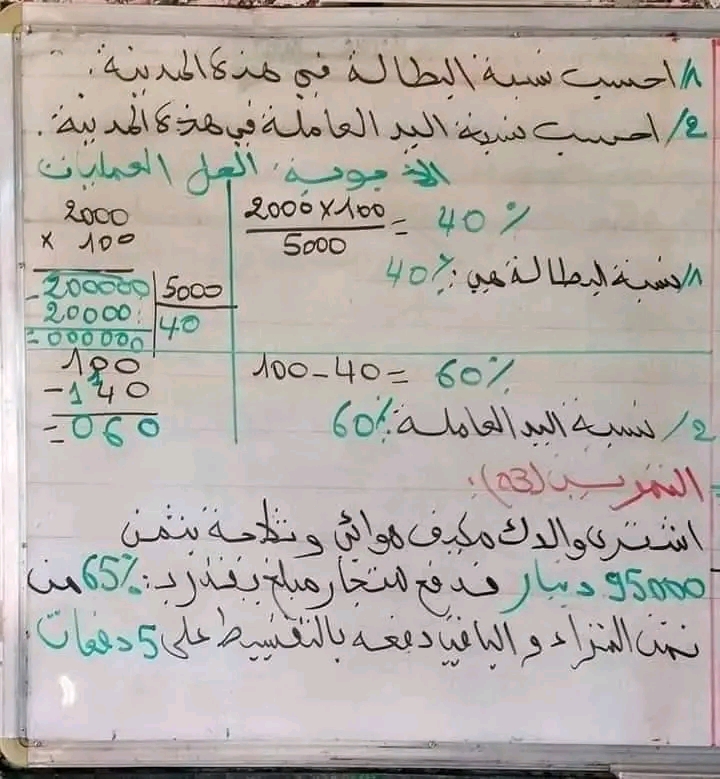 1/ احسب نسبة البطالة في هذه المدينة.
2/ احسب نسبة اليد العاملة في هذه المدينة.
الأجوبة: الحل العمليات
2000×100/5000 = 40%
1/ نسبة البطالة هي: 40%
2000
× 100
-200000 | 5000
20000: | 40
=000000
100 - 40 = 60%
2/ نسبة اليد العاملة: 60%
100
-140
=060
التمرين (03):
اشترى والدك مكيف هوائي وثلاجة بثمن
95000 دينار فدفع للتجار مبلغ يقدر بـ: 65% من
ثمن الشراء و الباقي دفعه بالتقسيط على 5 دفعات